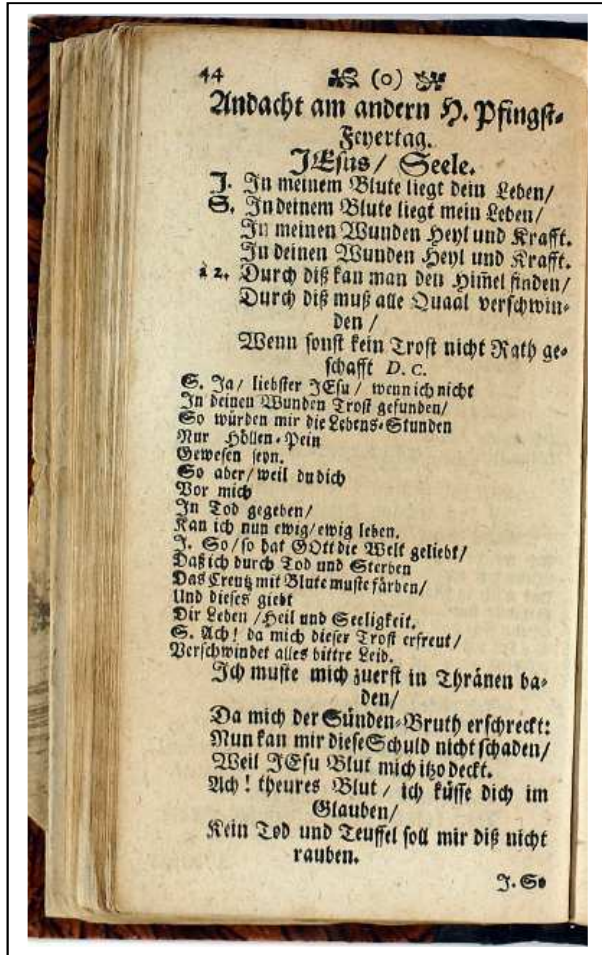 44 (o)
Andacht am andern H. Pfingst-
Feyertag.
JEsus / Seele.
J. In meinem Blute liegt dein Leben /
S. In deinem Blute liegt mein Leben /
In meinen Wunden Heyl und Krafft.
In deinen Wunden Heyl und Krafft.
à 2. Durch diß kan man den Him̄el finden /
Durch diß muß alle Quaal verschwin-
den /
Wenn sonst kein Trost nicht Rath ge-
schafft D. C.
S. Ja / liebster JEsu / wenn ich nicht
In deinen Wunden Trost gefunden /
So würden mir die Lebens-Stunden
Nur Höllen-Pein
Gewesen seyn.
So aber / weil du dich
Vor mich
In Tod gegeben /
Kan ich nun ewig / ewig leben.
J. So / so hat GOtt die Welt geliebt /
Daß ich durch Tod und Sterben
Das Creutz mit Blute muste färben /
Und dieses giebt
Dir Leben / Heil und Seeligkeit.
S. Ach! da mich dieser Trost erfreut /
Verschwindet alles bittre Leid.
Ich muste mich zuerst in Thränen ba-
den /
Da mich der Sünden-Bruth erschreckt:
Nun kan mir diese Schuld nicht schaden /
Weil JEsu Blut mich itzo deckt.
Ach! theures Blut / ich küsse dich im
Glauben /
Kein Tod und Teuffel soll mir diß nicht
rauben.
J. So